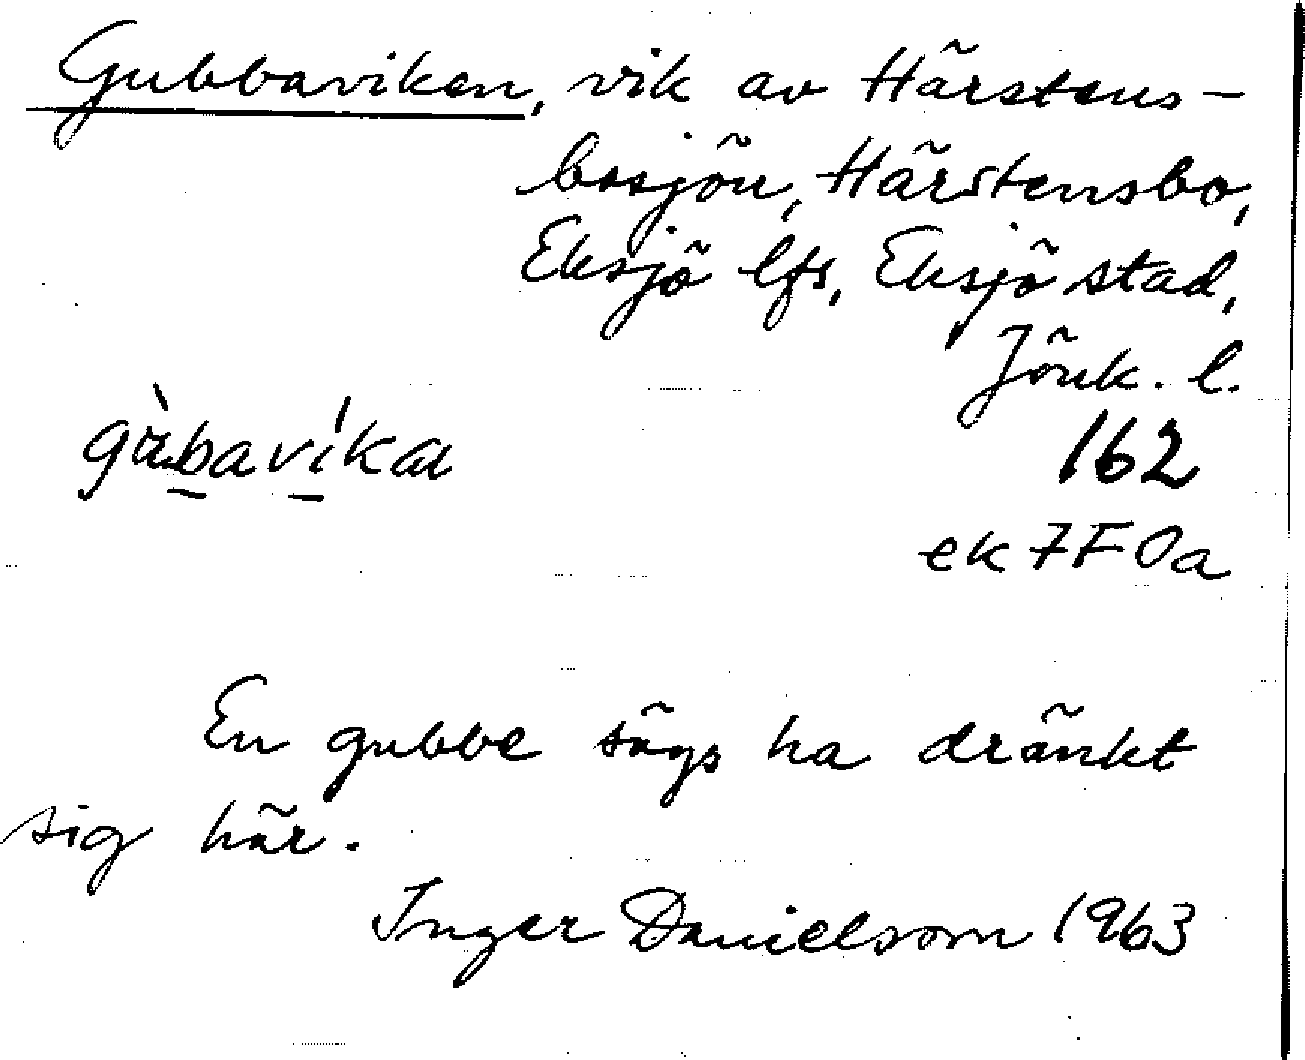 Gubbaviken, vik av Härstens-
bosjön, Härstensbo,
Eksjö lfs, Eksjö stad,
Jönk. l.
162
ek 7F0a
En gubbe sägs ha dränkt
sig här.
Inger Danielsson 1963